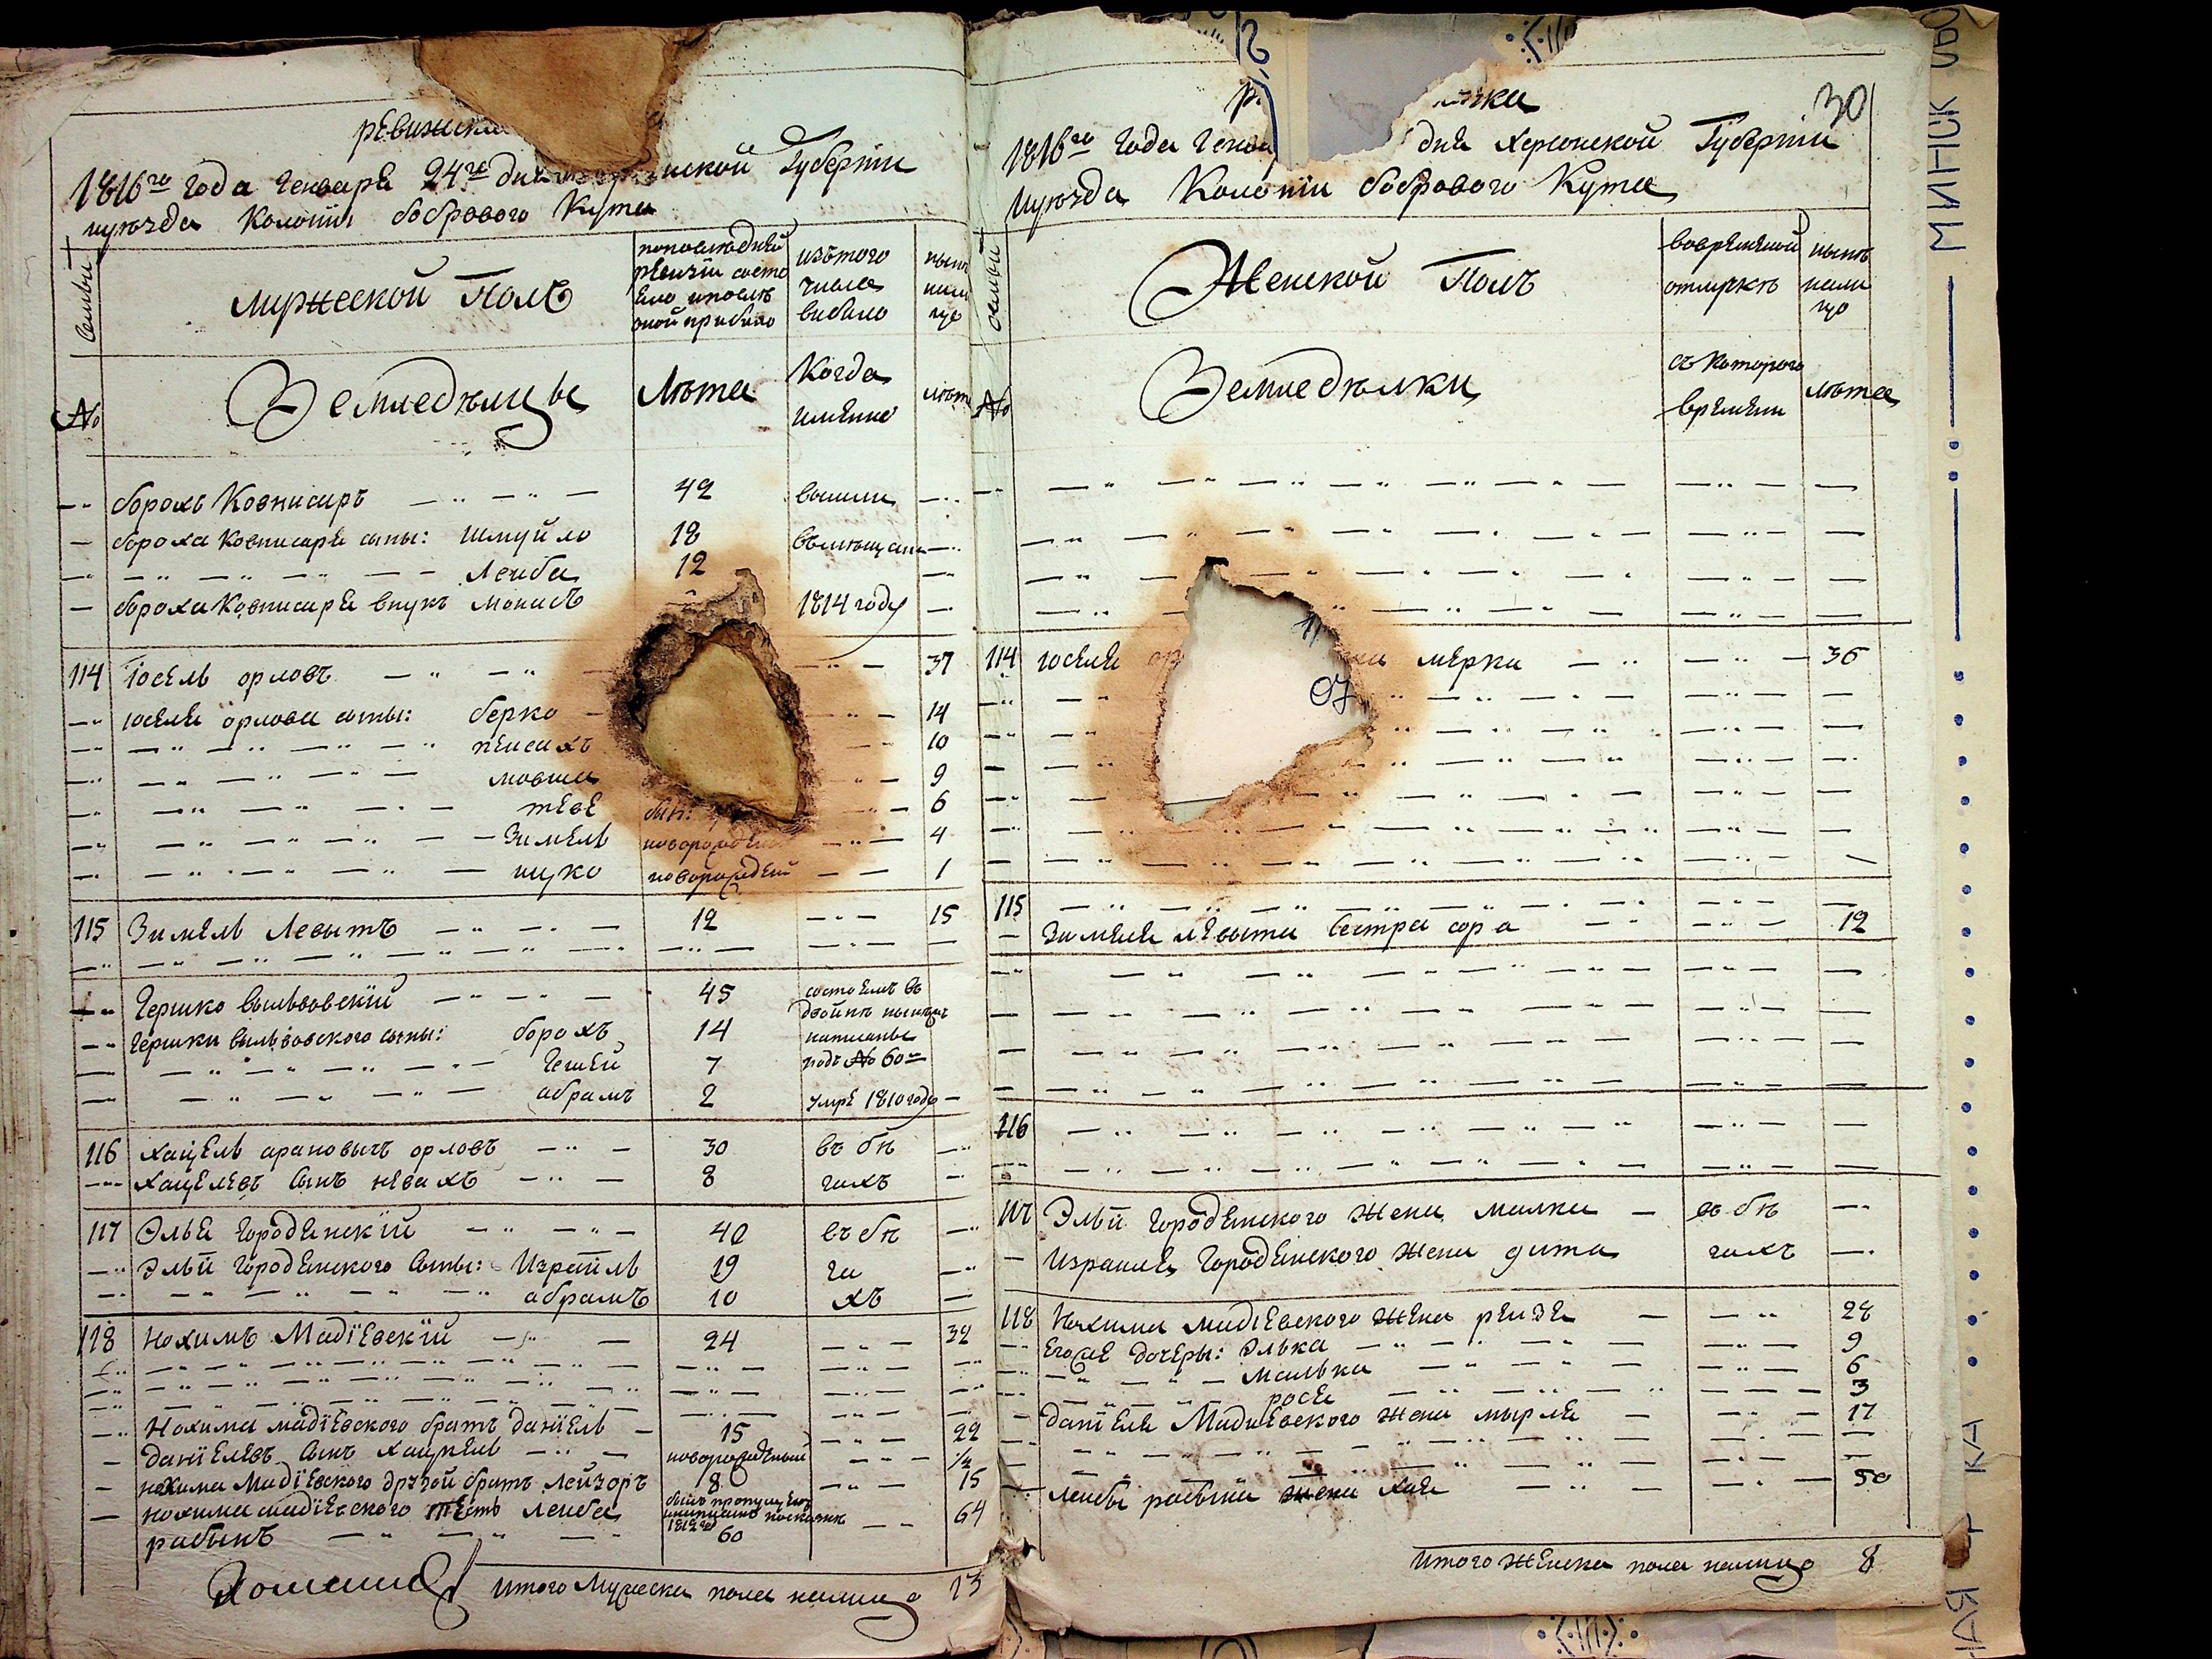 ревижска
1816го года генваря 24го дня нской Губернии
иуезда Колонии бобрового Кута
семьи
мужеской Полъ
попоследней
ревизии состо
яло ипосле
оной прибыло
изътого
числа
выбыло
ныне
нали
цо
№
Земледельцы
Лета
Когда
имянно
лета
борохъ Ковписаръ 42 вышли
бороха Ковписаря сыны: Шмуйло 18 въмещане
Лейба 12
бороха Ковписаря внукъ Монисъ 1814 году
114 Іосель орловъ 37
іоселя орлова сыны: берко 14
пейсахъ 10
мовша 9
теве 6
Зимель новорожден 4
ицко новорожденый 1
115 Зимель Левытъ 12 15
Гершко вильвовскій 45 состоялъ въ
двойне ныне
Гершки вильвовского сыны: борохъ 14 написаны
Гешей 7 подъ № 60
абрамъ 2 умре 1810 году
116 хацкель ароновычъ орловъ 30 въ бе
хацкелевъ сынъ невахъ 8 гахъ
117 Элья Городенскій 40 въ бе
Эльи Городенского сыны: Израйль 19 га
абрамъ 10 хъ
118 Нохимъ Мадіевскій 24 32
Нохима мадіевского братъ даніель 15 22
даніелевъ сынъ хацкель новорожденый ½
нохима Мадіевского другой братъ лейзоръ 8 15
нохима мадіевского тесть лейба былъ пропущенъ 64
рабынъ 1812го 60
итого Мужеска пола налицо 13
30
1816го года генва дня херсонской Губернии
иуезда Колонии бобрового Кута
семьи
Женской Полъ
вовременной
отлучке
ныне
нали
цо
№
Земледелки
съ которого
времени
лета
114 іоселя ор на мерка 36
07
115
Зимеля левыта сестра сора 12
116
117 Эльи Городенского жена малка въ бе
Израиля Городенского жена дита гахъ
118 Нохима мадіевского жена рейзя 28
Егоже дочеры: Элька 9
малька 6
рося 3
даніеля Мадиевского жена мырля 17
лейбы рабына жена хая 50
итого женска пола налицо 8
МИНСК
КА